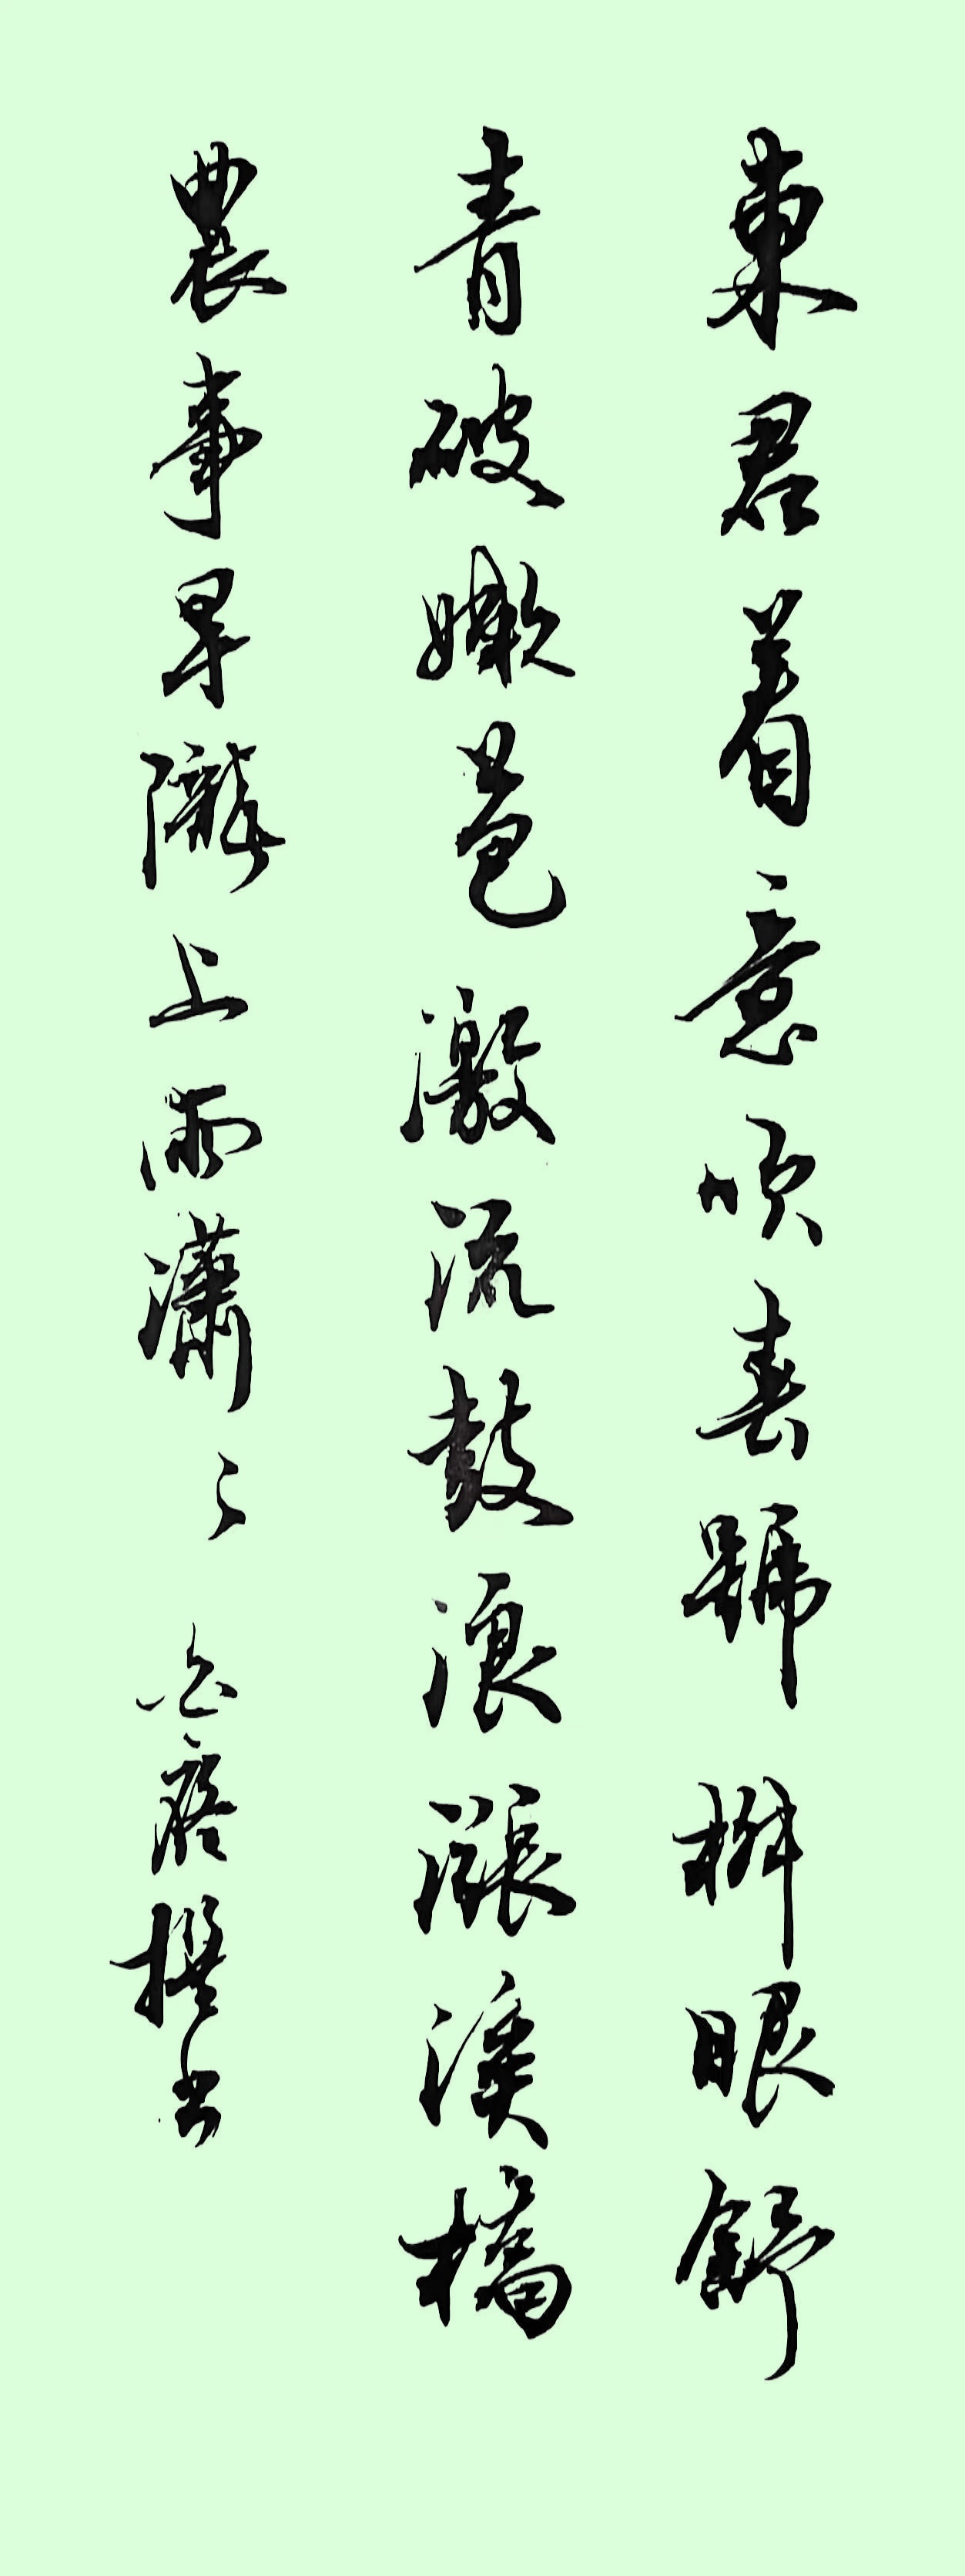 東君着意吹春號柳眼舒
青破嫩苞激流鼓浪漲溪橋
農事早隴上雨瀟〻 撰书